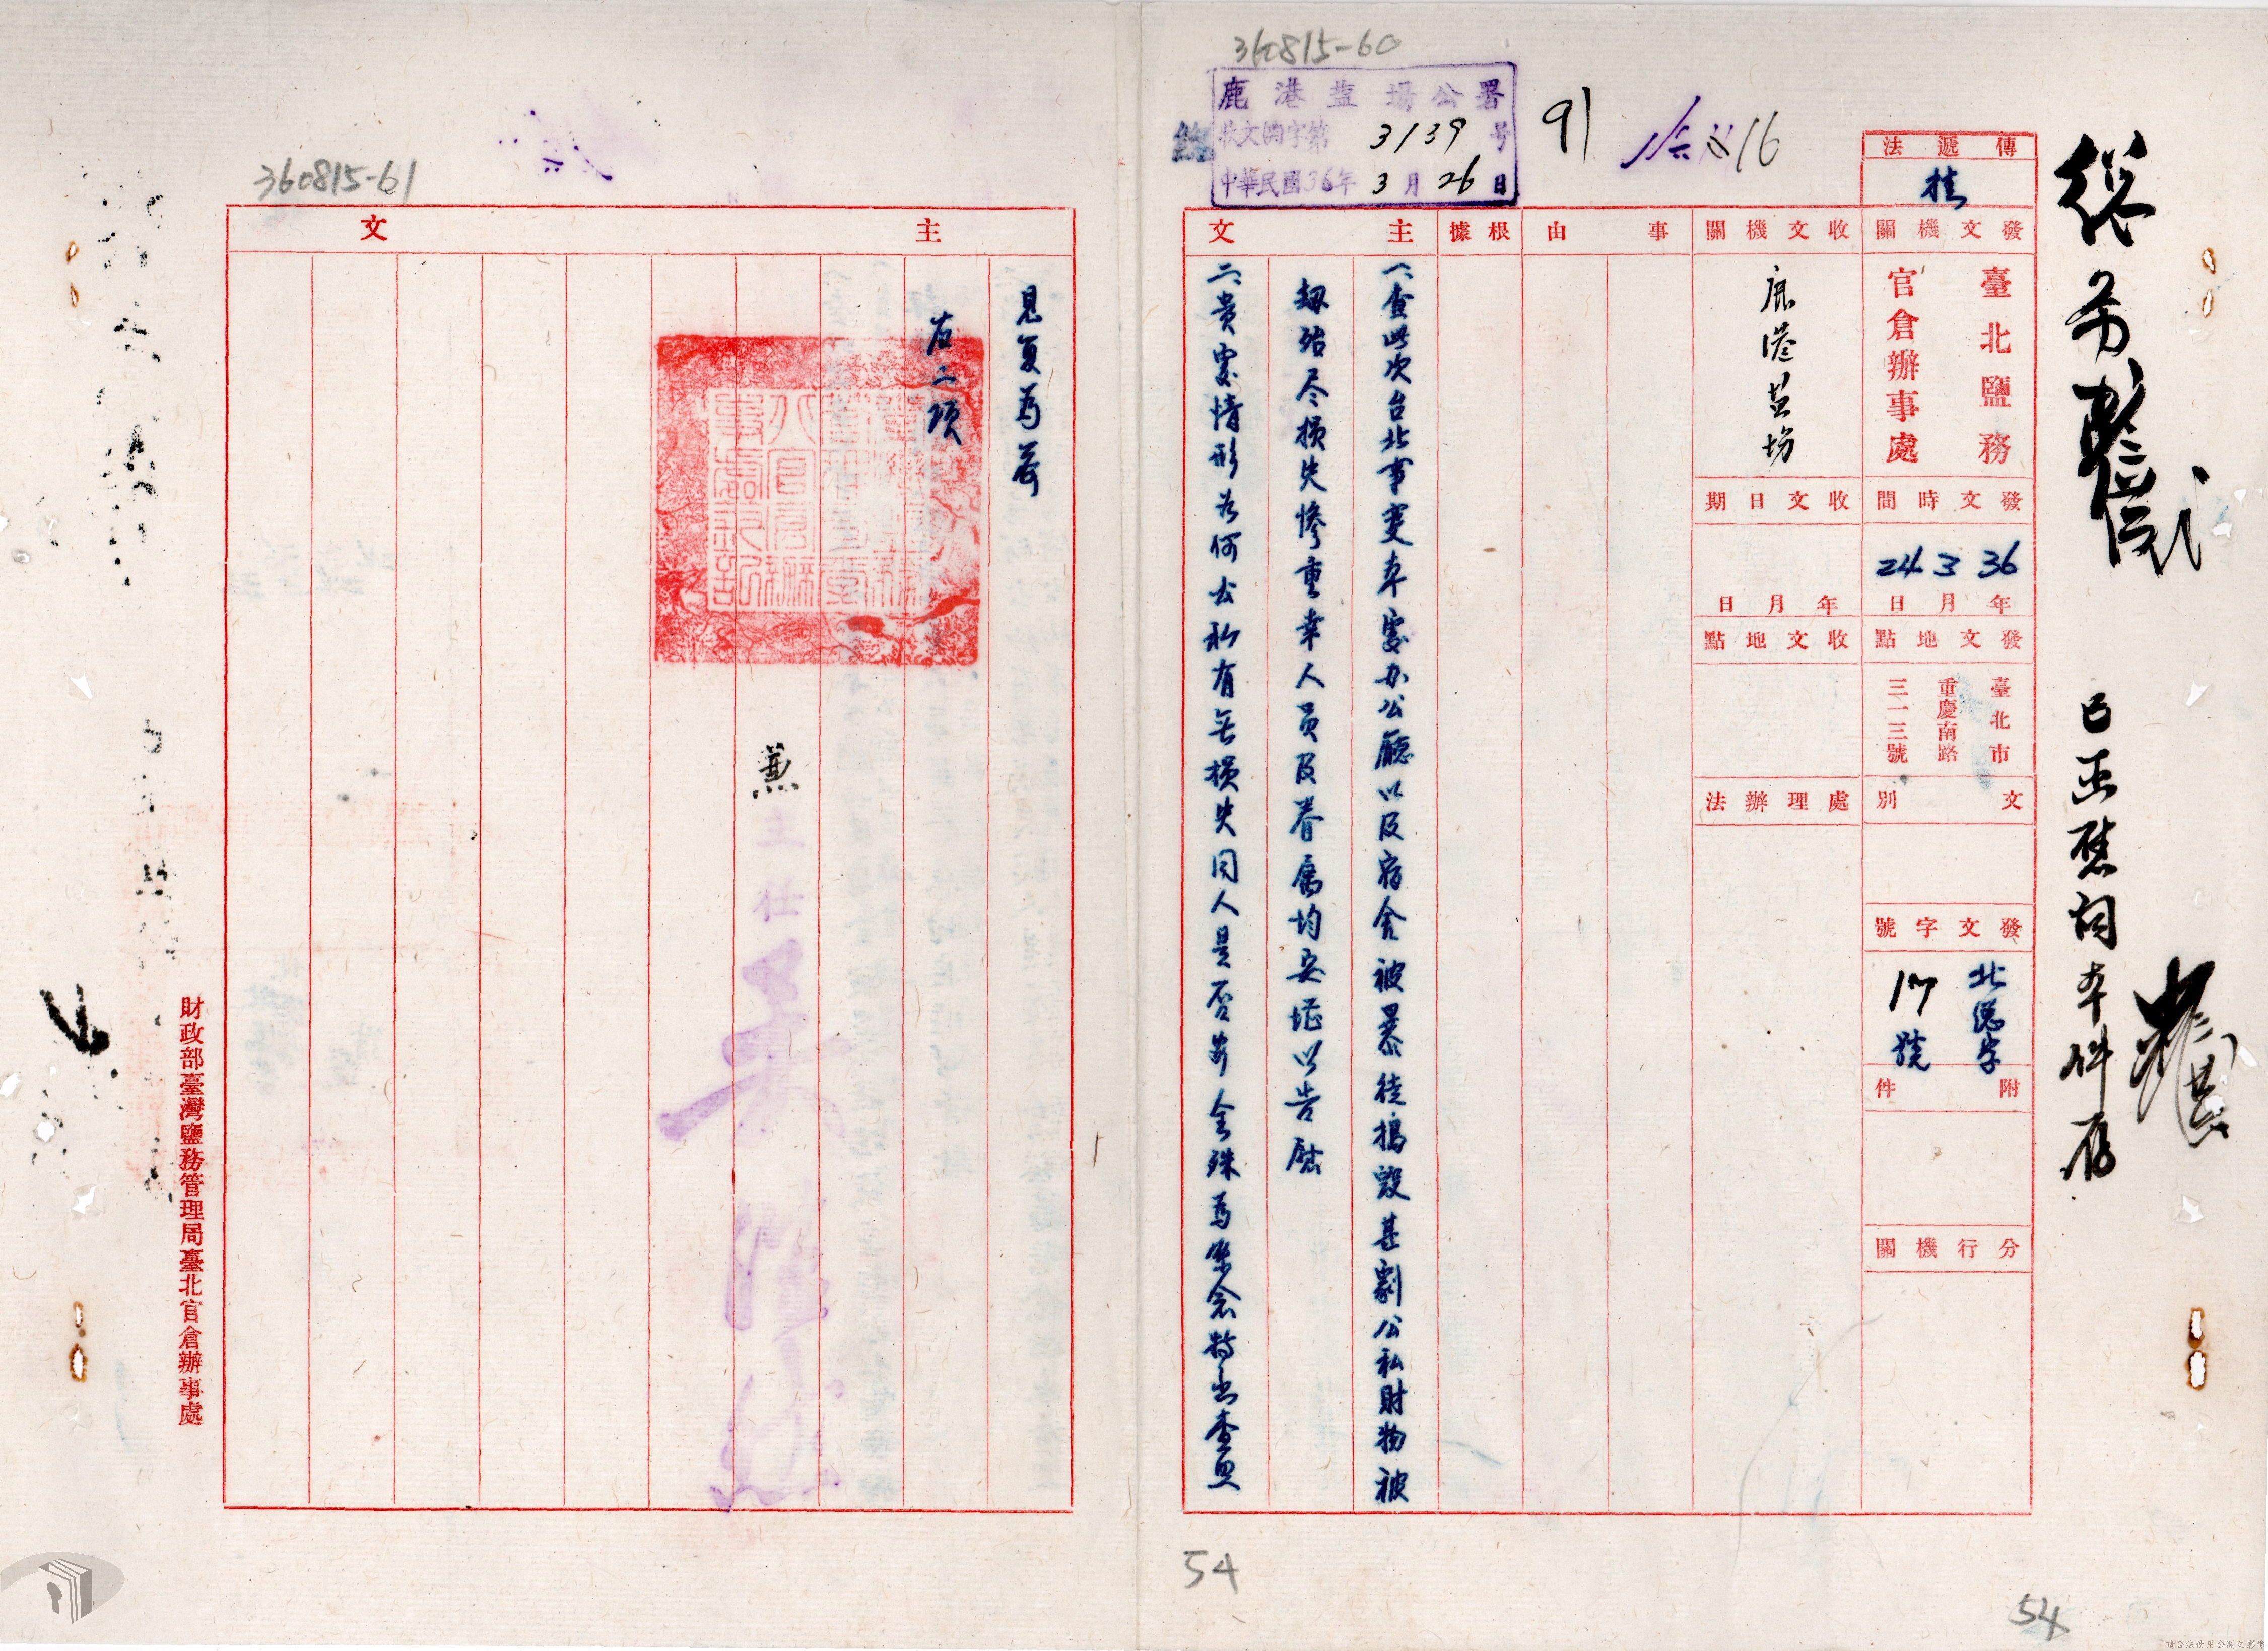 360815-60
鹿港塩場公署
收文 字第3139号
中華民國36年3月26日
91
16
已函慰問本件存
傳遞法
掛
發文機關
臺北鹽務
官倉辦事處
發文時間
36年3月24日
發文地點
臺北市
重慶南路
三一三號
文別
發文字號
北總字
17號
附件
分行機關
收文機關
鹿港盐場
收文日期
年月日
收文地點
處理辦法
事由
根據
主文
一、查此次台北事变本處办公廳以及宿舍被暴徒搗毀甚劇公私財物被
劫殆尽損失慘重幸人員及眷屬均安堪以告慰
二、貴處情形为何公私有無損失同人是否安全殊為繫念特函查照
54
54
360815-61
主文
見复為荷
右二項
兼主任
財政部臺灣鹽務管理局臺北官倉辦事處
請合法使用公開之影像